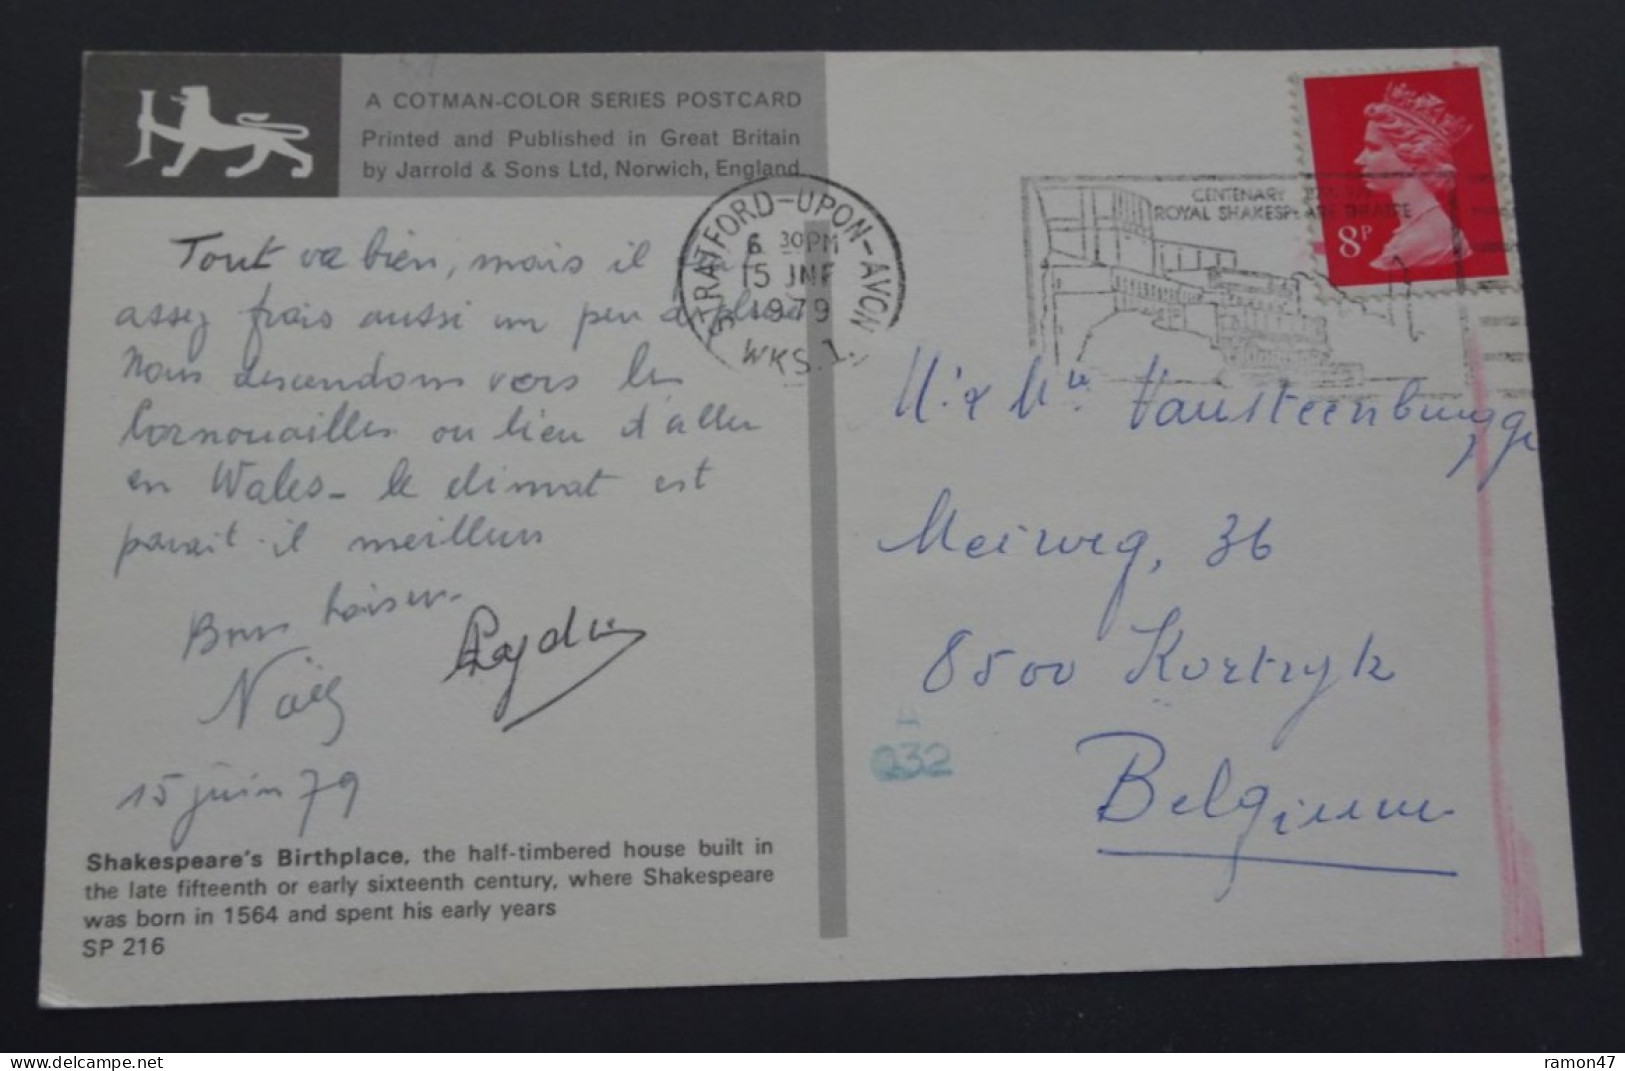 A COTMAN-COLOR SERIES POSTCARD
Printed and Published in Great Britain
by Jarrold & Sons Ltd, Norwich, England
Tout va bien, mais il
assez frais aussi un peu
Nous descendons vers les
Cornouailles ou lieu d'aller
en Wales - le climat est
parait-il meilleur
Bons baisers
15 juin 79
Shakespeare's Birthplace, the half-timbered house built in
the late fifteenth or early sixteenth century, where Shakespeare
was born in 1564 and spent his early years
SP 216
STRATFORD-UPON-AVON
6 30PM
15 JNE
1979
WKS. 1.
CENTENARY
ROYAL SHAKESPEARE THEATRE
8P
M. & Me Vansteenbrugge
Meiweg, 36
8500 Kortryk
Belgium
032
www.delcampe.net
ramon47